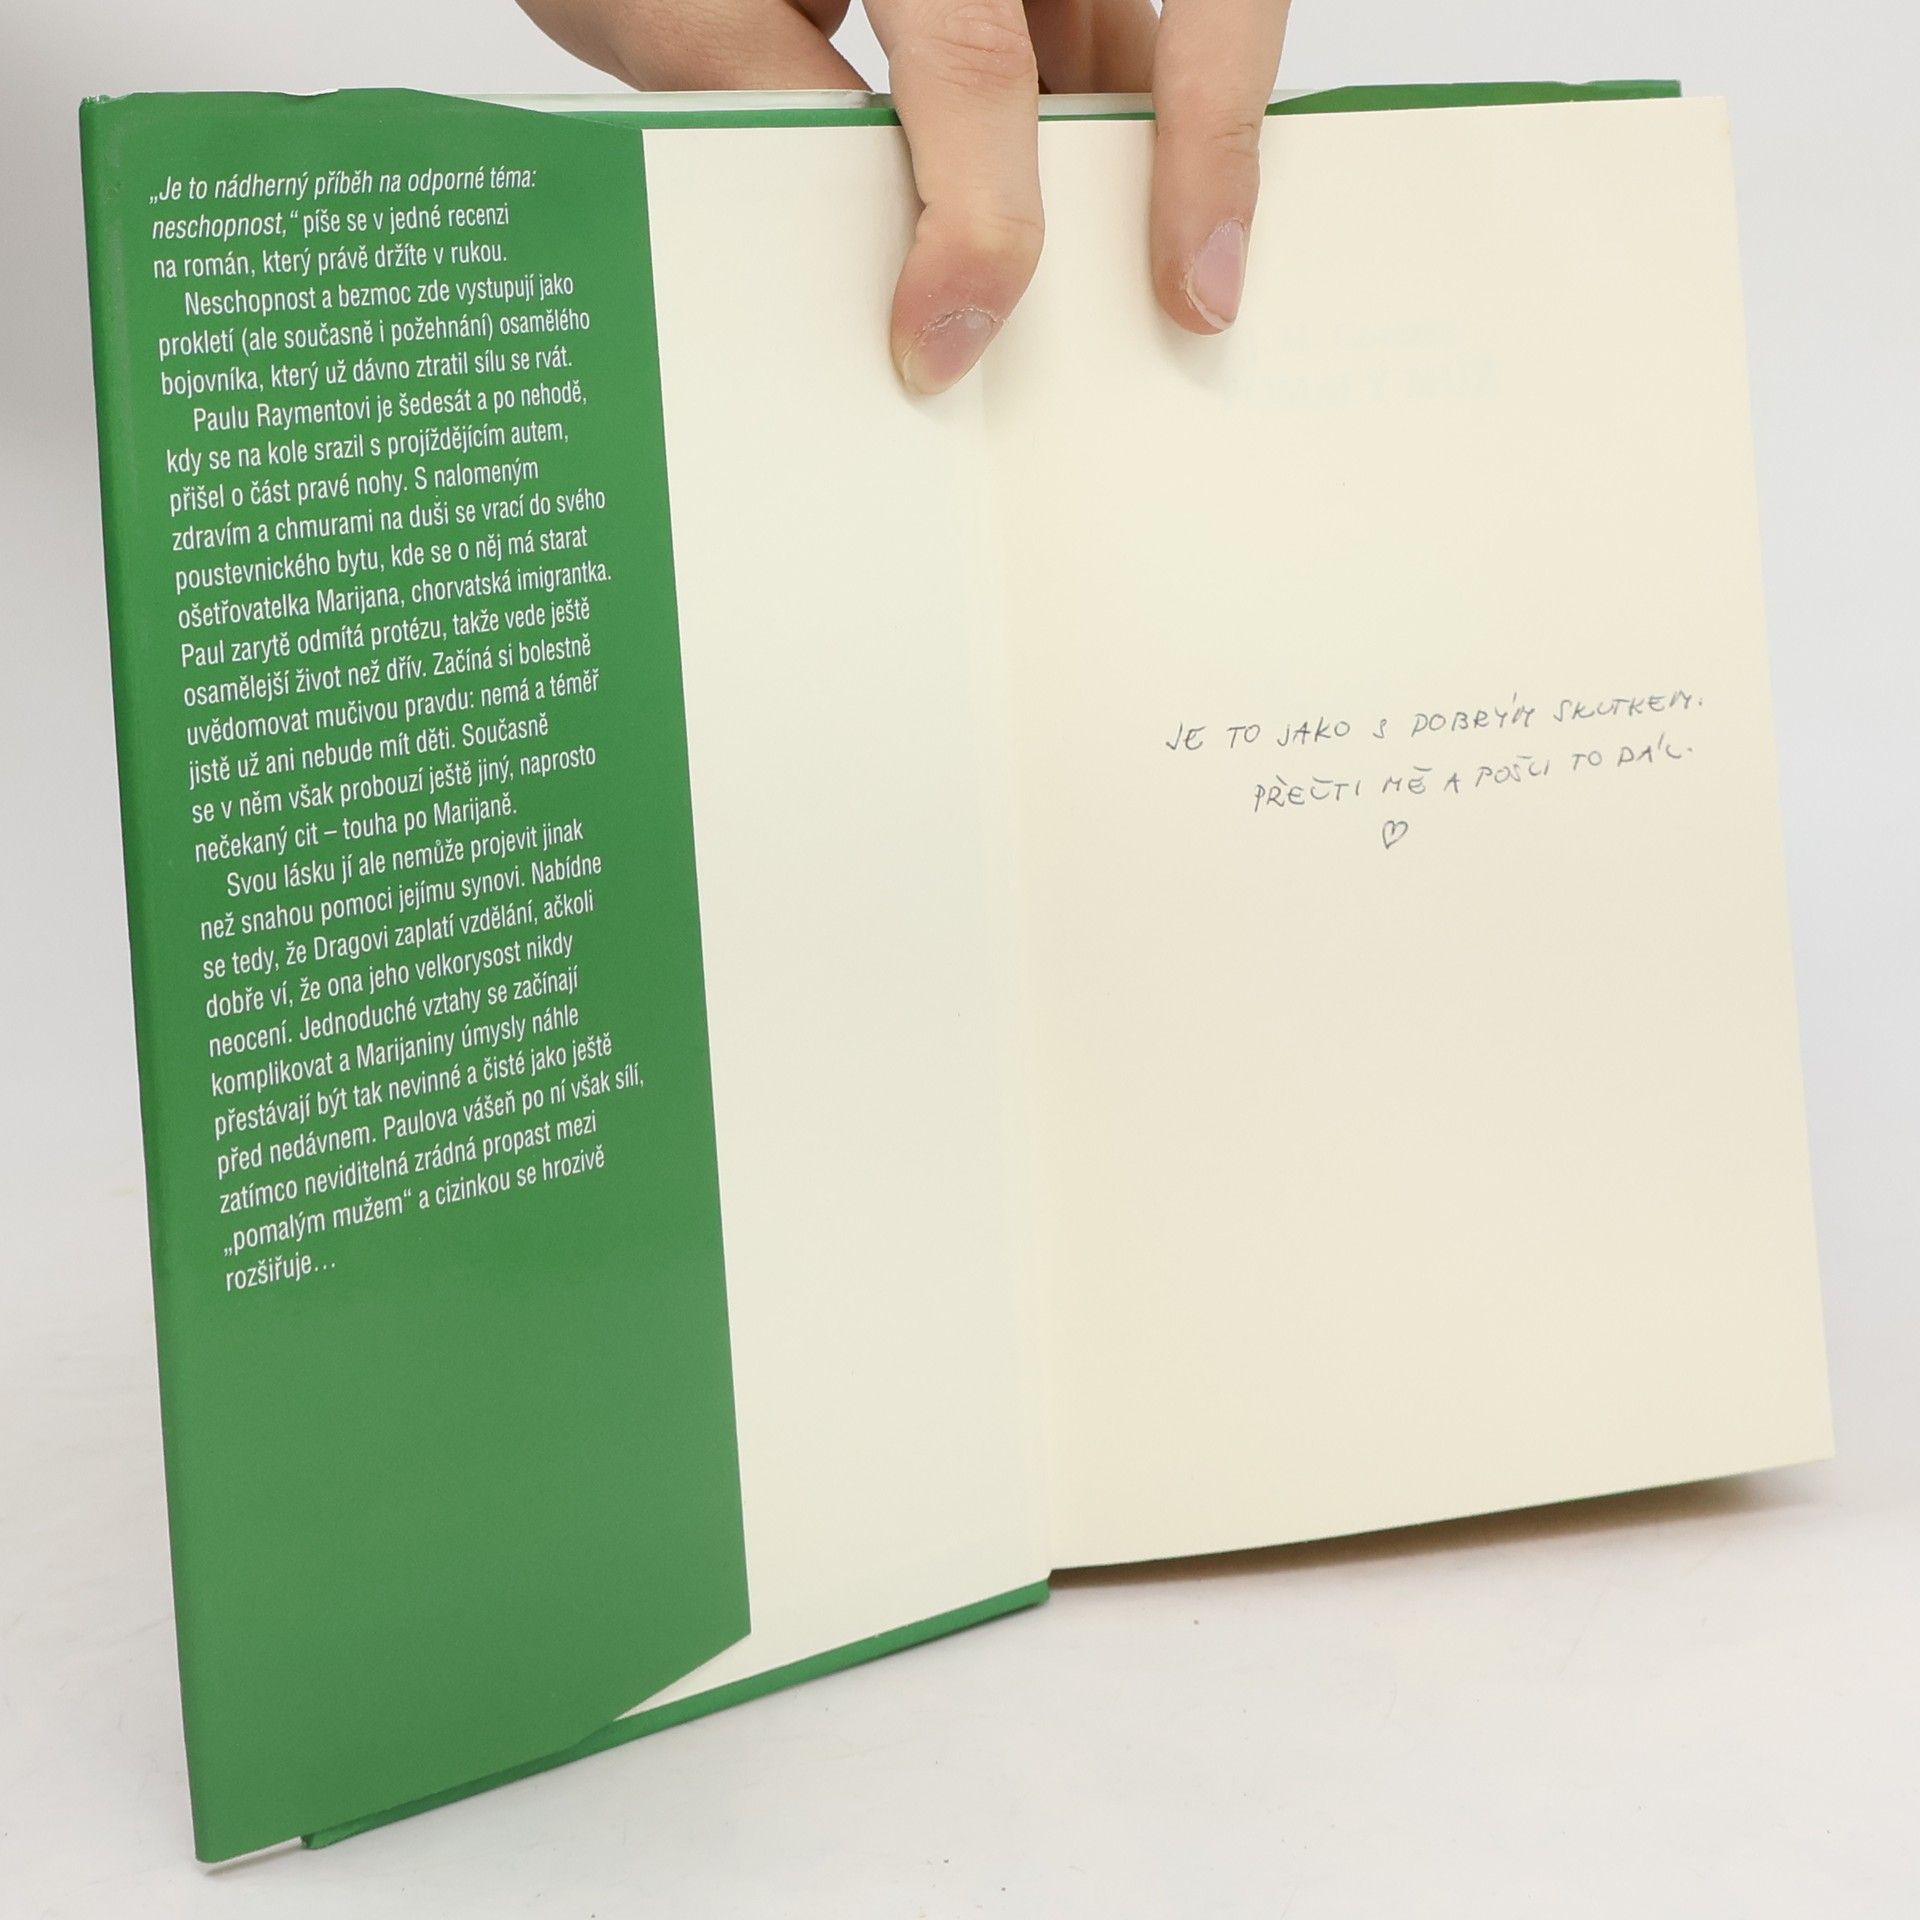 „Je to nádherný příběh na odporné téma:
neschopnost,“ píše se v jedné recenzi
na román, který právě držíte v rukou.
Neschopnost a bezmoc zde vystupují jako
prokletí (ale současně i požehnání) osamělého
bojovníka, který už dávno ztratil sílu se rvát.
Paulu Raymentovi je šedesát a po nehodě,
kdy se na kole srazil s projíždějícím autem,
přišel o část pravé nohy. S nalomeným
zdravím a chmurami na duši se vrací do svého
poustevnického bytu, kde se o něj má starat
ošetřovatelka Marijana, chorvatská imigrantka.
Paul zarytě odmítá protézu, takže vede ještě
osamělejší život než dřív. Začíná si bolestně
uvědomovat mučivou pravdu: nemá a téměř
jistě už ani nebude mít děti. Současně
se v něm však probouzí ještě jiný, naprosto
nečekaný cit – touha po Marijaně.
Svou lásku jí ale nemůže projevit jinak
než snahou pomoci jejímu synovi. Nabídne
se tedy, že Dragovi zaplatí vzdělání, ačkoli
dobře ví, že ona jeho velkorysost nikdy
neocení. Jednoduché vztahy se začínají
komplikovat a Marijaniny úmysly náhle
přestávají být tak nevinné a čisté jako ještě
před nedávnem. Paulova vášeň po ní však sílí,
zatímco neviditelná zrádná propast mezi
„pomalým mužem“ a cizinkou se hrozivě
rozšiřuje…
JE TO JAKO S DOBRÝM SKUTKEM.
PŘEČTI MĚ A POŠLI TO DÁL.
♡